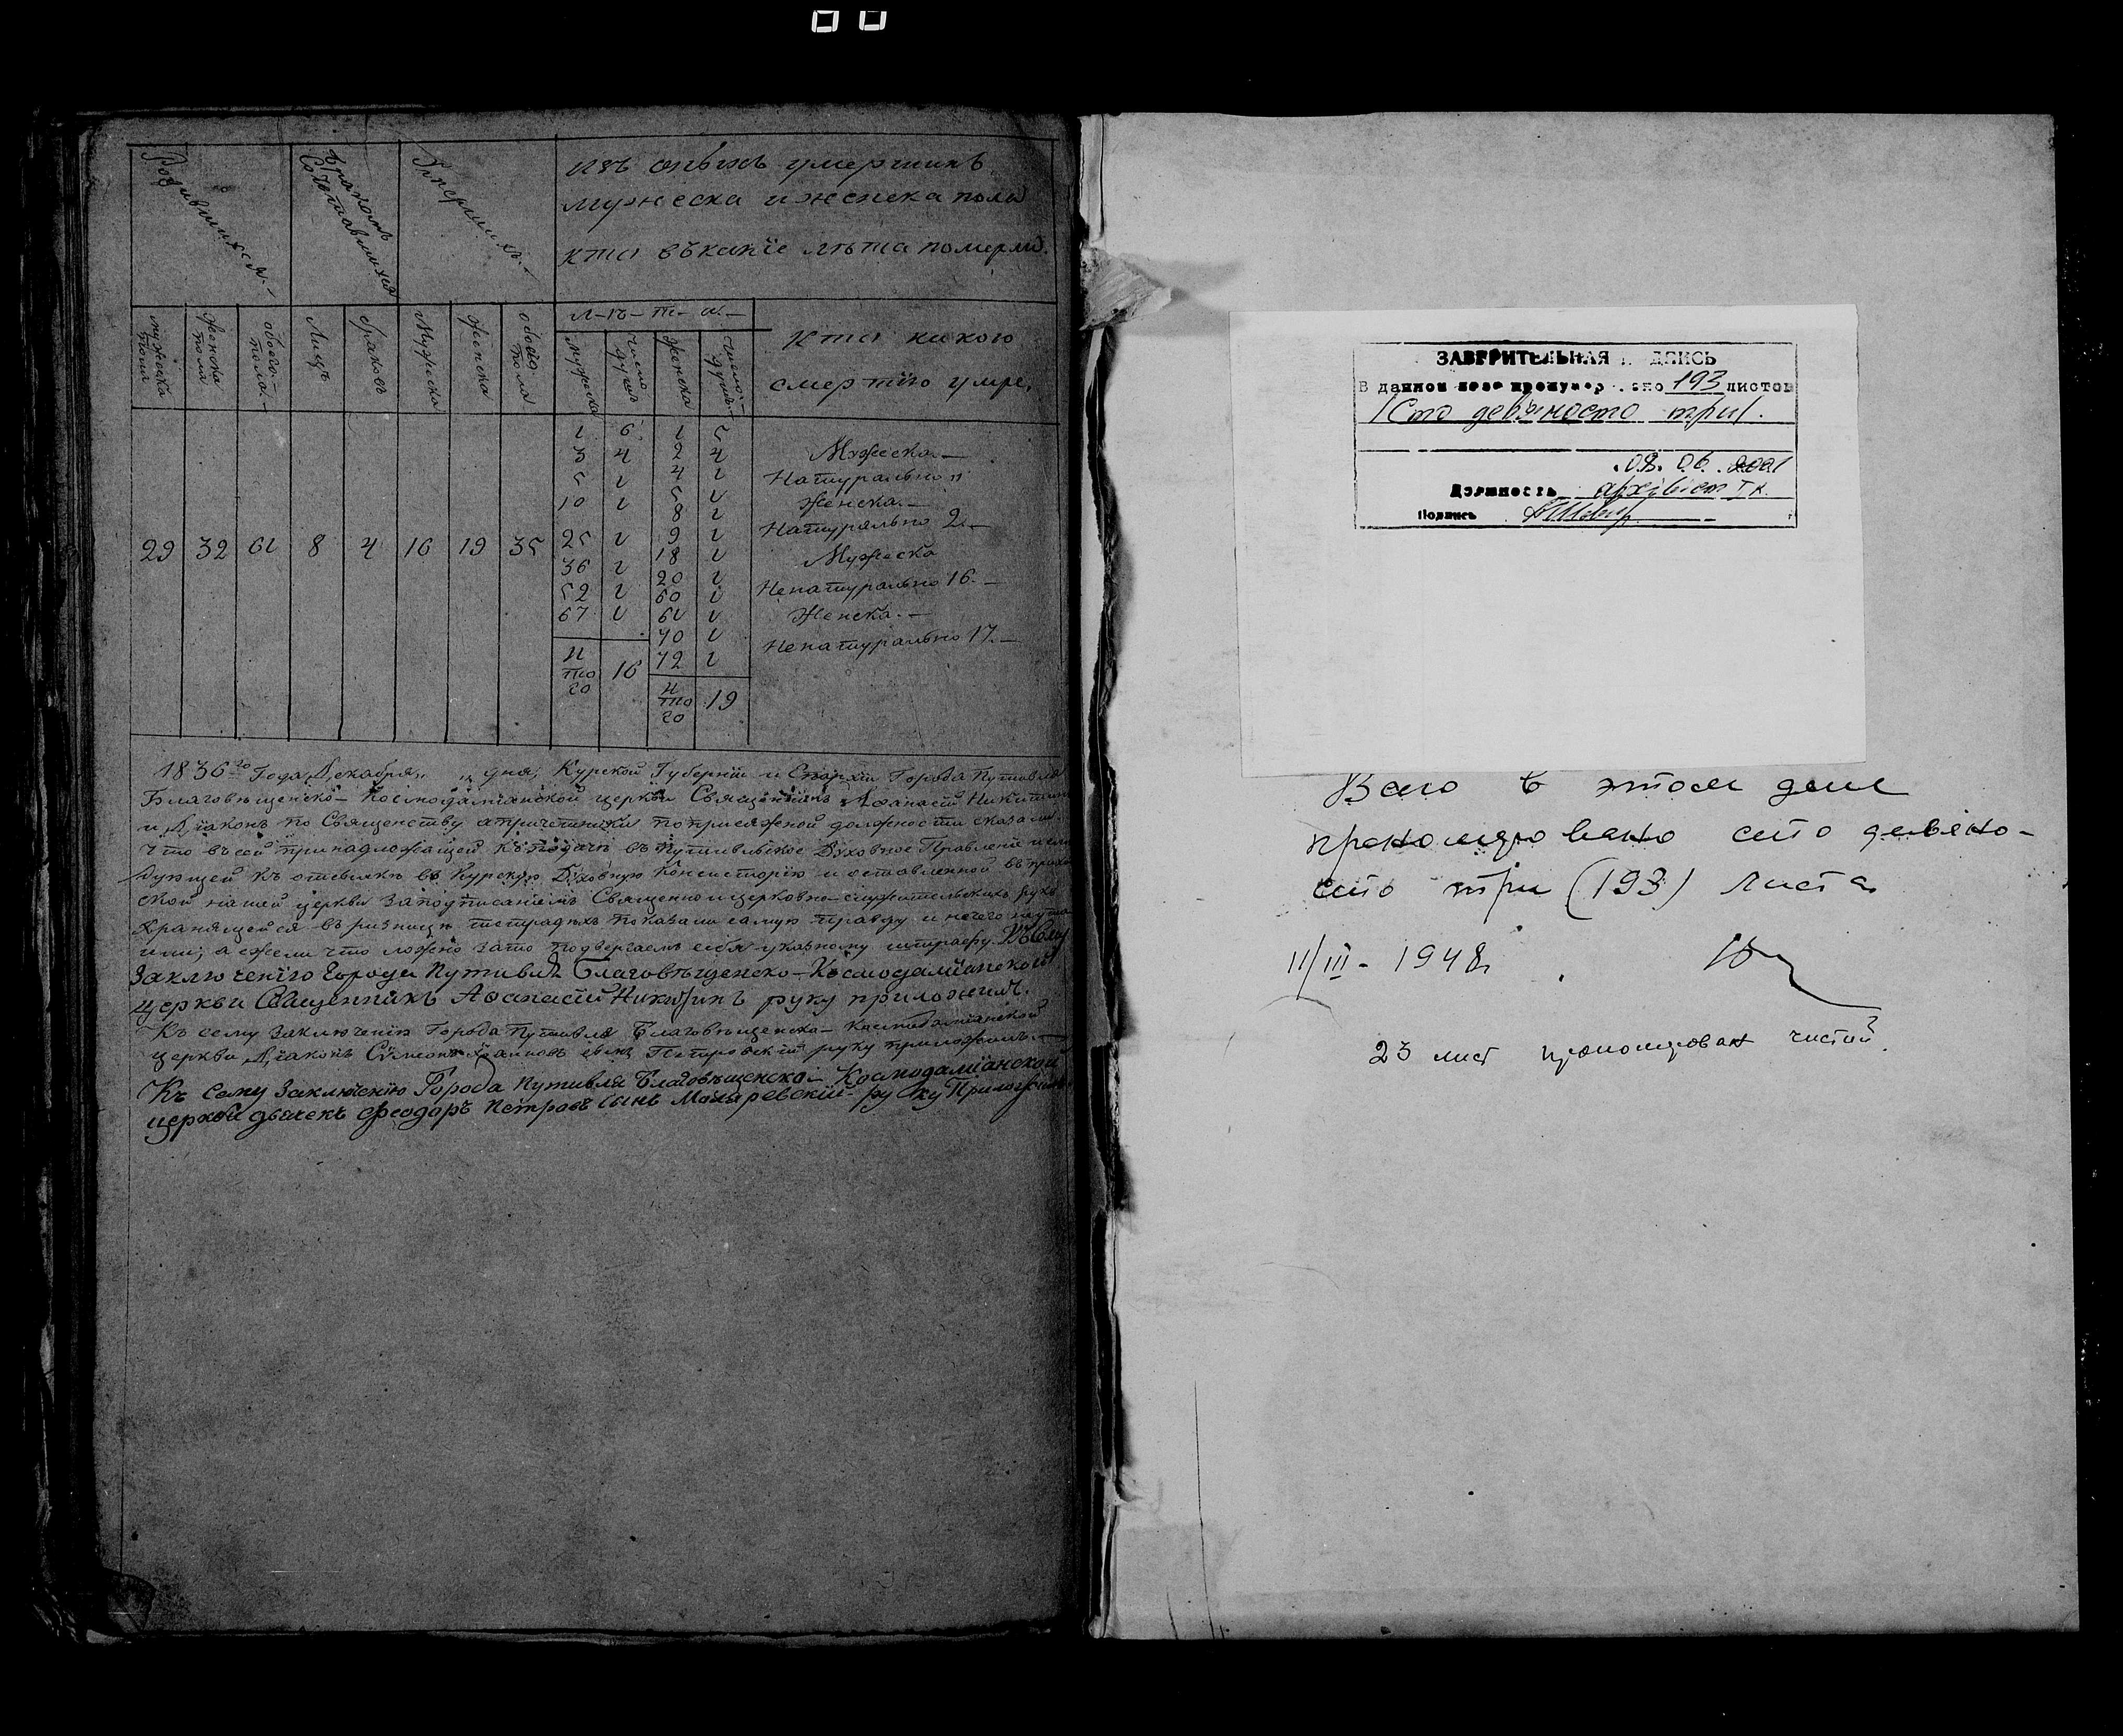 Родившихся.-
Бракомъ
Сочетавшихся
Умершихъ.-
изъ оныхъ умершихъ
мужеска и женска пола
кто въ какiе лѣта померли.
мужеска
пола
женска
пола
обоего
пола.-
Лицъ
браковъ
Мужеска
женска
обоего
пола
л-ѣ-т-а.-
мужеска
число
душъ
женска
число
душъ
кто какою
смертiю умре.
29 32 61 8 4 16 19 35
1 6 1 5
3 4 2 4
5 1 4 1
10 1 5 1
8 1
25 1 9 1
36 1 18 1
52 1 20 1
67 1 60 1
61 1
70 1
72 1
И
то
го
16
И
то
го
19
Мужеска.-
Натурально "
Женска.-
Натурально 2.-
Мужеска
Ненатурально 16.-
Женска.-
Ненатурально 17.-
1836го Года Декабря " " дня, Курской Губернiи и Епархiи Города Путивля
Благовѣщенско-Космодамiанской церкви Священникъ Афанасiй Никитинъ
и Дiаконъ по Священству а причетники по присяжной должности сказали
что въ сей принадлежащей къ подачѣ въ Путивльское Духовное Правленiе и
дующей къ отсылкѣ въ Курскую Духовную Консисторiю и оставленной въ
ской нашей церкви за подписанiемъ Священно и церковно-служительскихъ рукъ
хранящейся въ ризницѣ тетрадяхъ показали самую правду и нечего не ута
или; а ежели что ложно за то подвергаемъ себя указному штрафу. Къ Сему
Заключенiю Города Путивля Благовѣщенско-Космодамiанской
церкви Священникъ Афанасiй Никитинъ руку приложилъ.
Къ сему заключенiю Города Путивля Благовѣщенско-Космодамiанской
церкви Дiаконъ Сѵмеонъ Iоанновъ сынъ Петровскiй руку приложилъ.-
Къ Сему Заключенiю Города Путивля Благовѣщенско-Космодамiанской
церкви дьячекъ Феодоръ Петровъ сынъ Макаревскiй руку Приложилъ.
ЗАВЕРИТЕЛЬНАЯ НАДПИСЬ
В данном деле пронумеровано 193 листов
/Сто девяносто три/.
.08. 06. 2001
Должность архівіст I к.
Подпись
Всего в этом деле
прономеровано сто девяно-
сто три (193) листа
11/III - 1948г.
23 лист прономерован чистый.